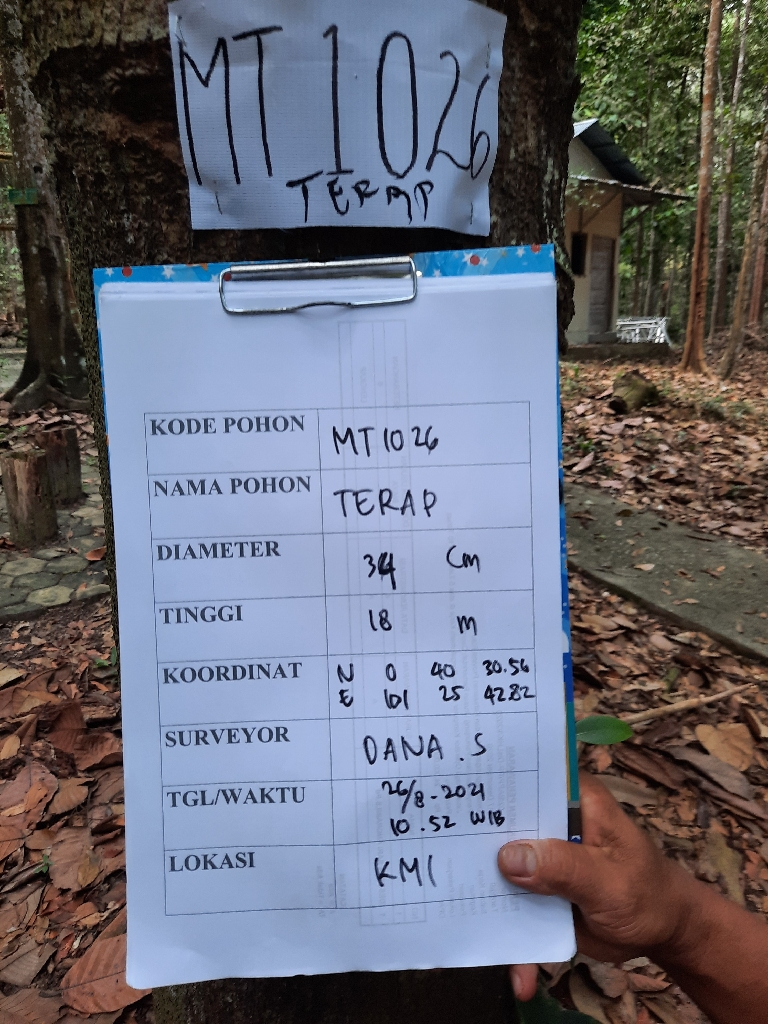 MT 1026
TERAP
KODE POHON MT1026
NAMA POHON TERAP
DIAMETER 34 Cm
TINGGI 18 m
KOORDINAT N 0 40 30.56
E 101 25 42.82
SURVEYOR DANA . S
TGL/WAKTU 26/8-2021
10.52 WIB
LOKASI KMI